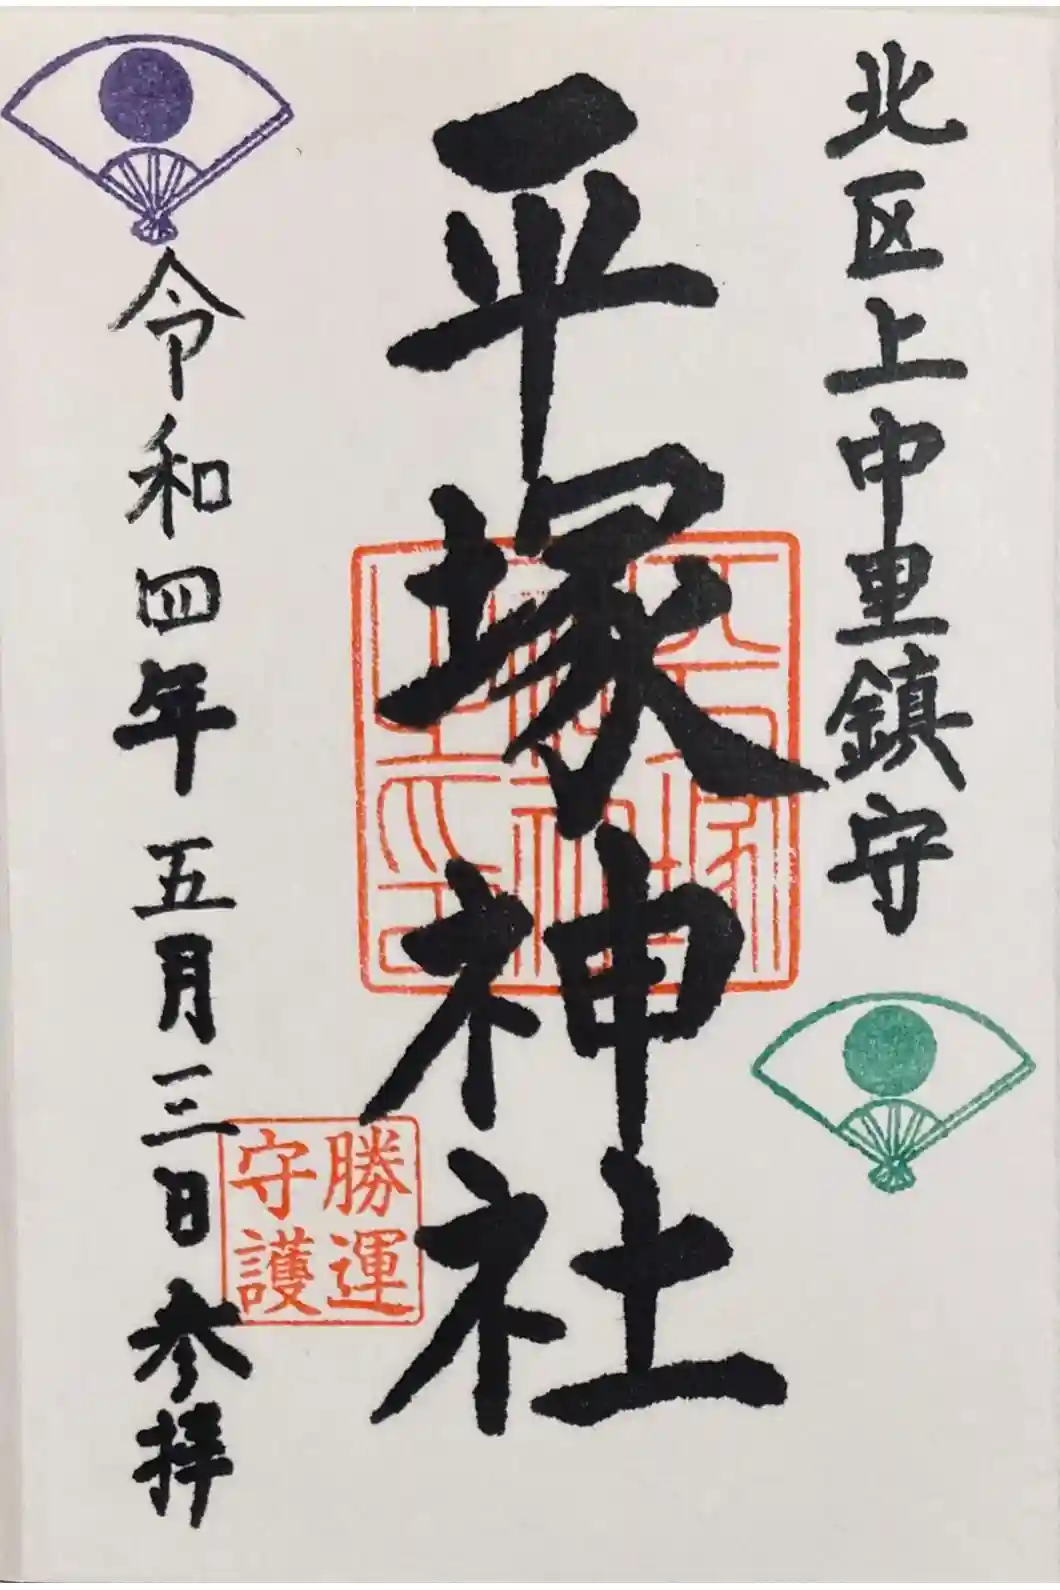 北区上中里鎮守
平塚神社
平塚神社之印
勝運
守護
令和四年五月三日参拝